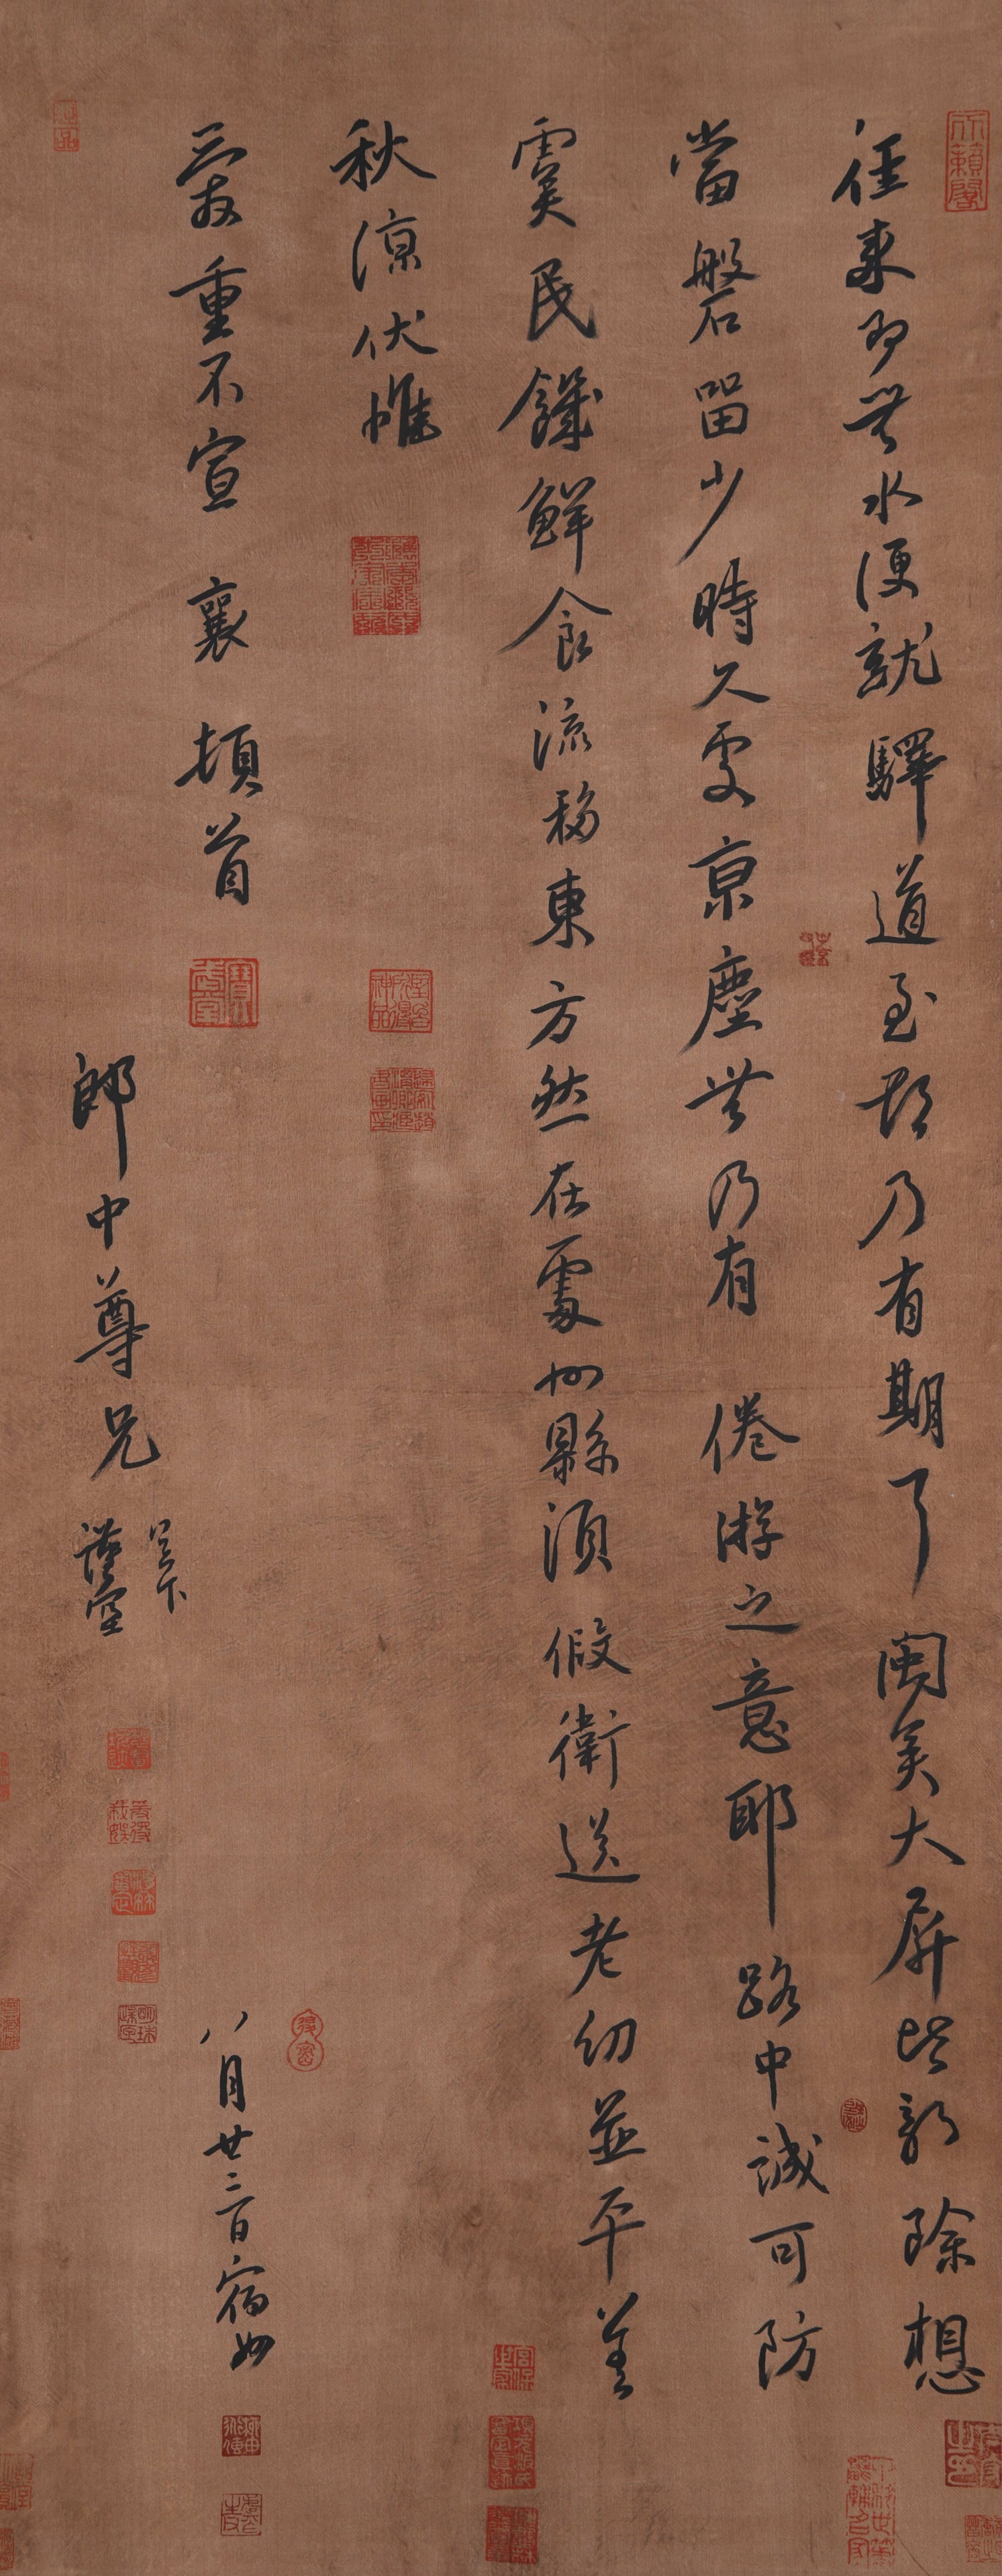 徑來即無水便就驛道至都乃有期耳閩吳大屏皆新除想
當磐留少時久處京塵無乃有倦游之意耶路中誠可防
虞民饑鮮食流移東方然在處州縣須假衛送老幼並平善
秋涼伏惟
愛重不宣 襄 頓首
郎中尊兄 足下
謹空
八月廿三日宿州
天籟閣